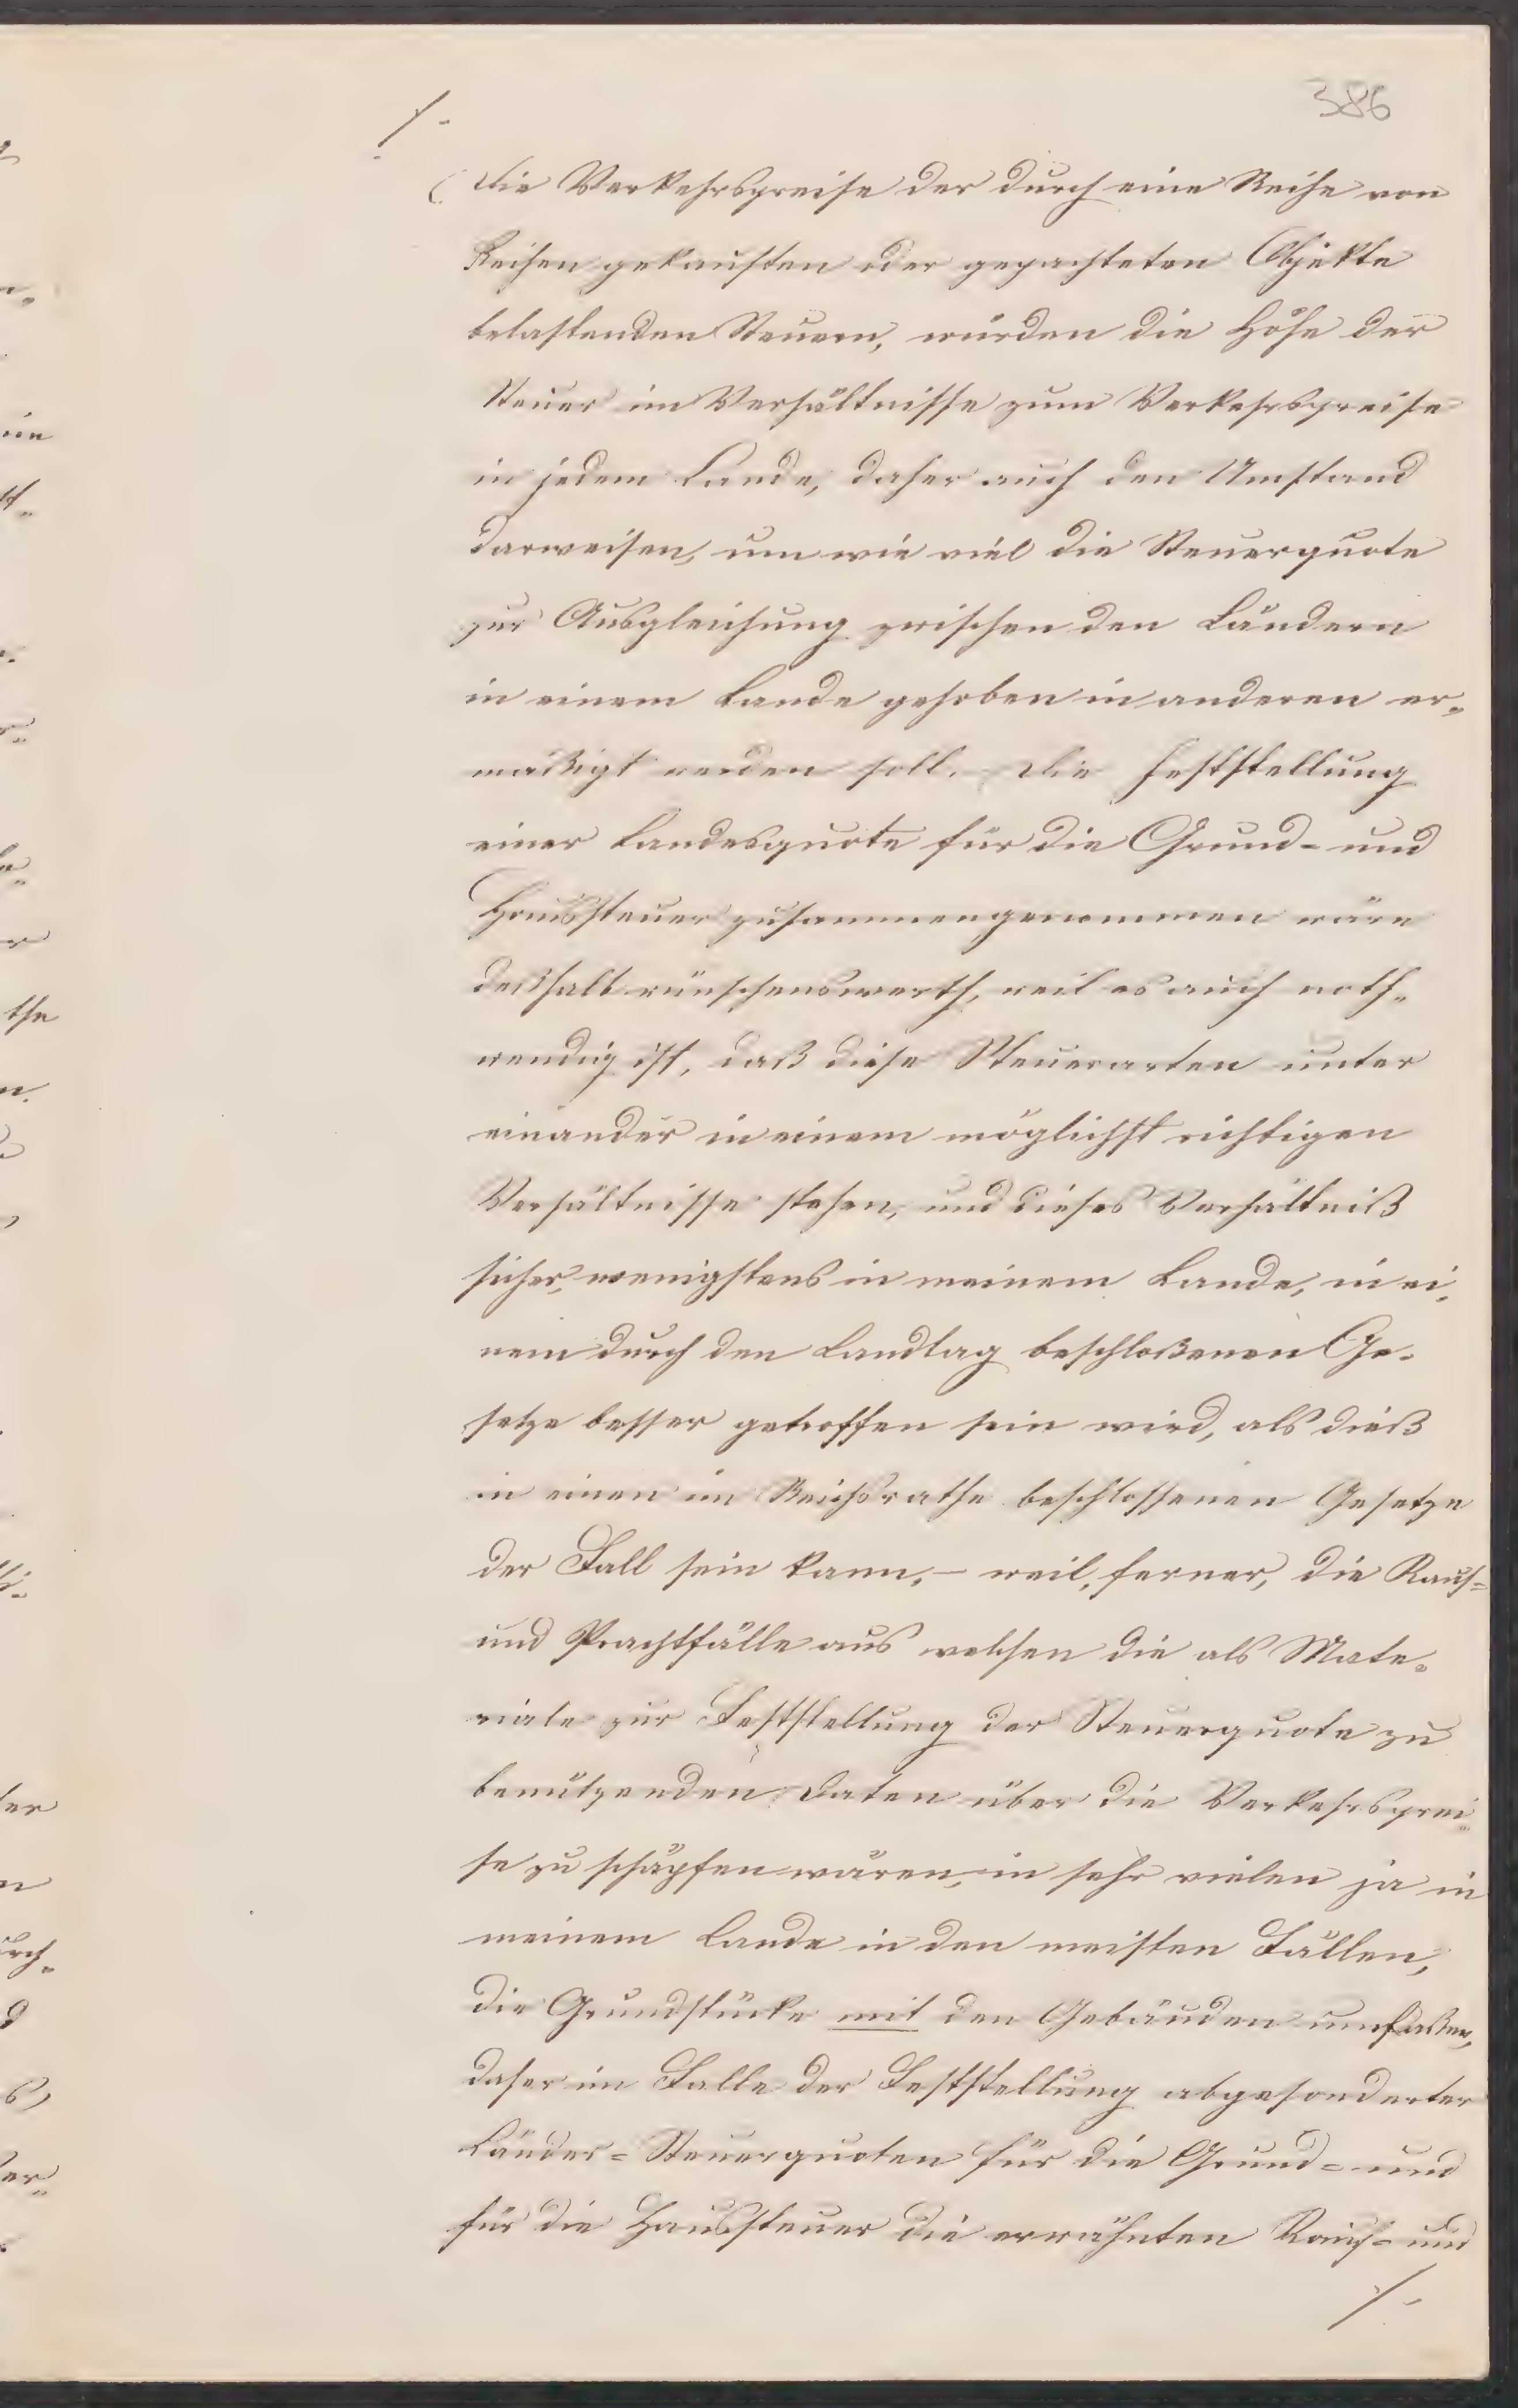 386
./.
die Verkehrspreise der durch eine Reihe von
Reihen gekauften oder gepachteten Objekte
belastenden Steuern, würden die Höhe der
Steuer im Verhältnisse zum Verkehrspreise
in jedem Lande, daher auch den Umstand
darweisen, um wie viel die Steuerquote
zur Ausgleichung zwischen den Ländern
in einem Lande gehoben in anderen er-
mäßigt werden soll. Die Feststellung
einer Landesquote für die Grund- und
Haussteuer zusammengenommen wäre
deßhalb wünschenswerth, weil es auch noth-
wendig ist, daß diese Steuerarten unter
einander in einem möglichst richtigen
Verhältnisse stehen, und dieses Verhältniß
sicher, wenigstens in meinem Lande, in ei-
nem durch den Landtag beschloßenen Ge-
setze besser getroffen sein wird, als dieß
in einen im Reichsrathe beschlossenen Gesetze
der Fall sein kann, – weil, ferner, die Kauf-
und Pachtfälle aus welchen die als Mate-
riale zur Feststellung der Steuerquote zu
benützenden Daten über die Verkehrsprei-
se zu schöpfen wären, in sehr vielen ja in
meinem Lande in den meisten Fällen,
die Grundstücke mit den Gebäuden umfaßen,
daher im Falle der Feststellung abgesonderter
Länder-Steuerquoten für die Grund- und
für die Haussteuer die erwähnten Kauf- und
./.